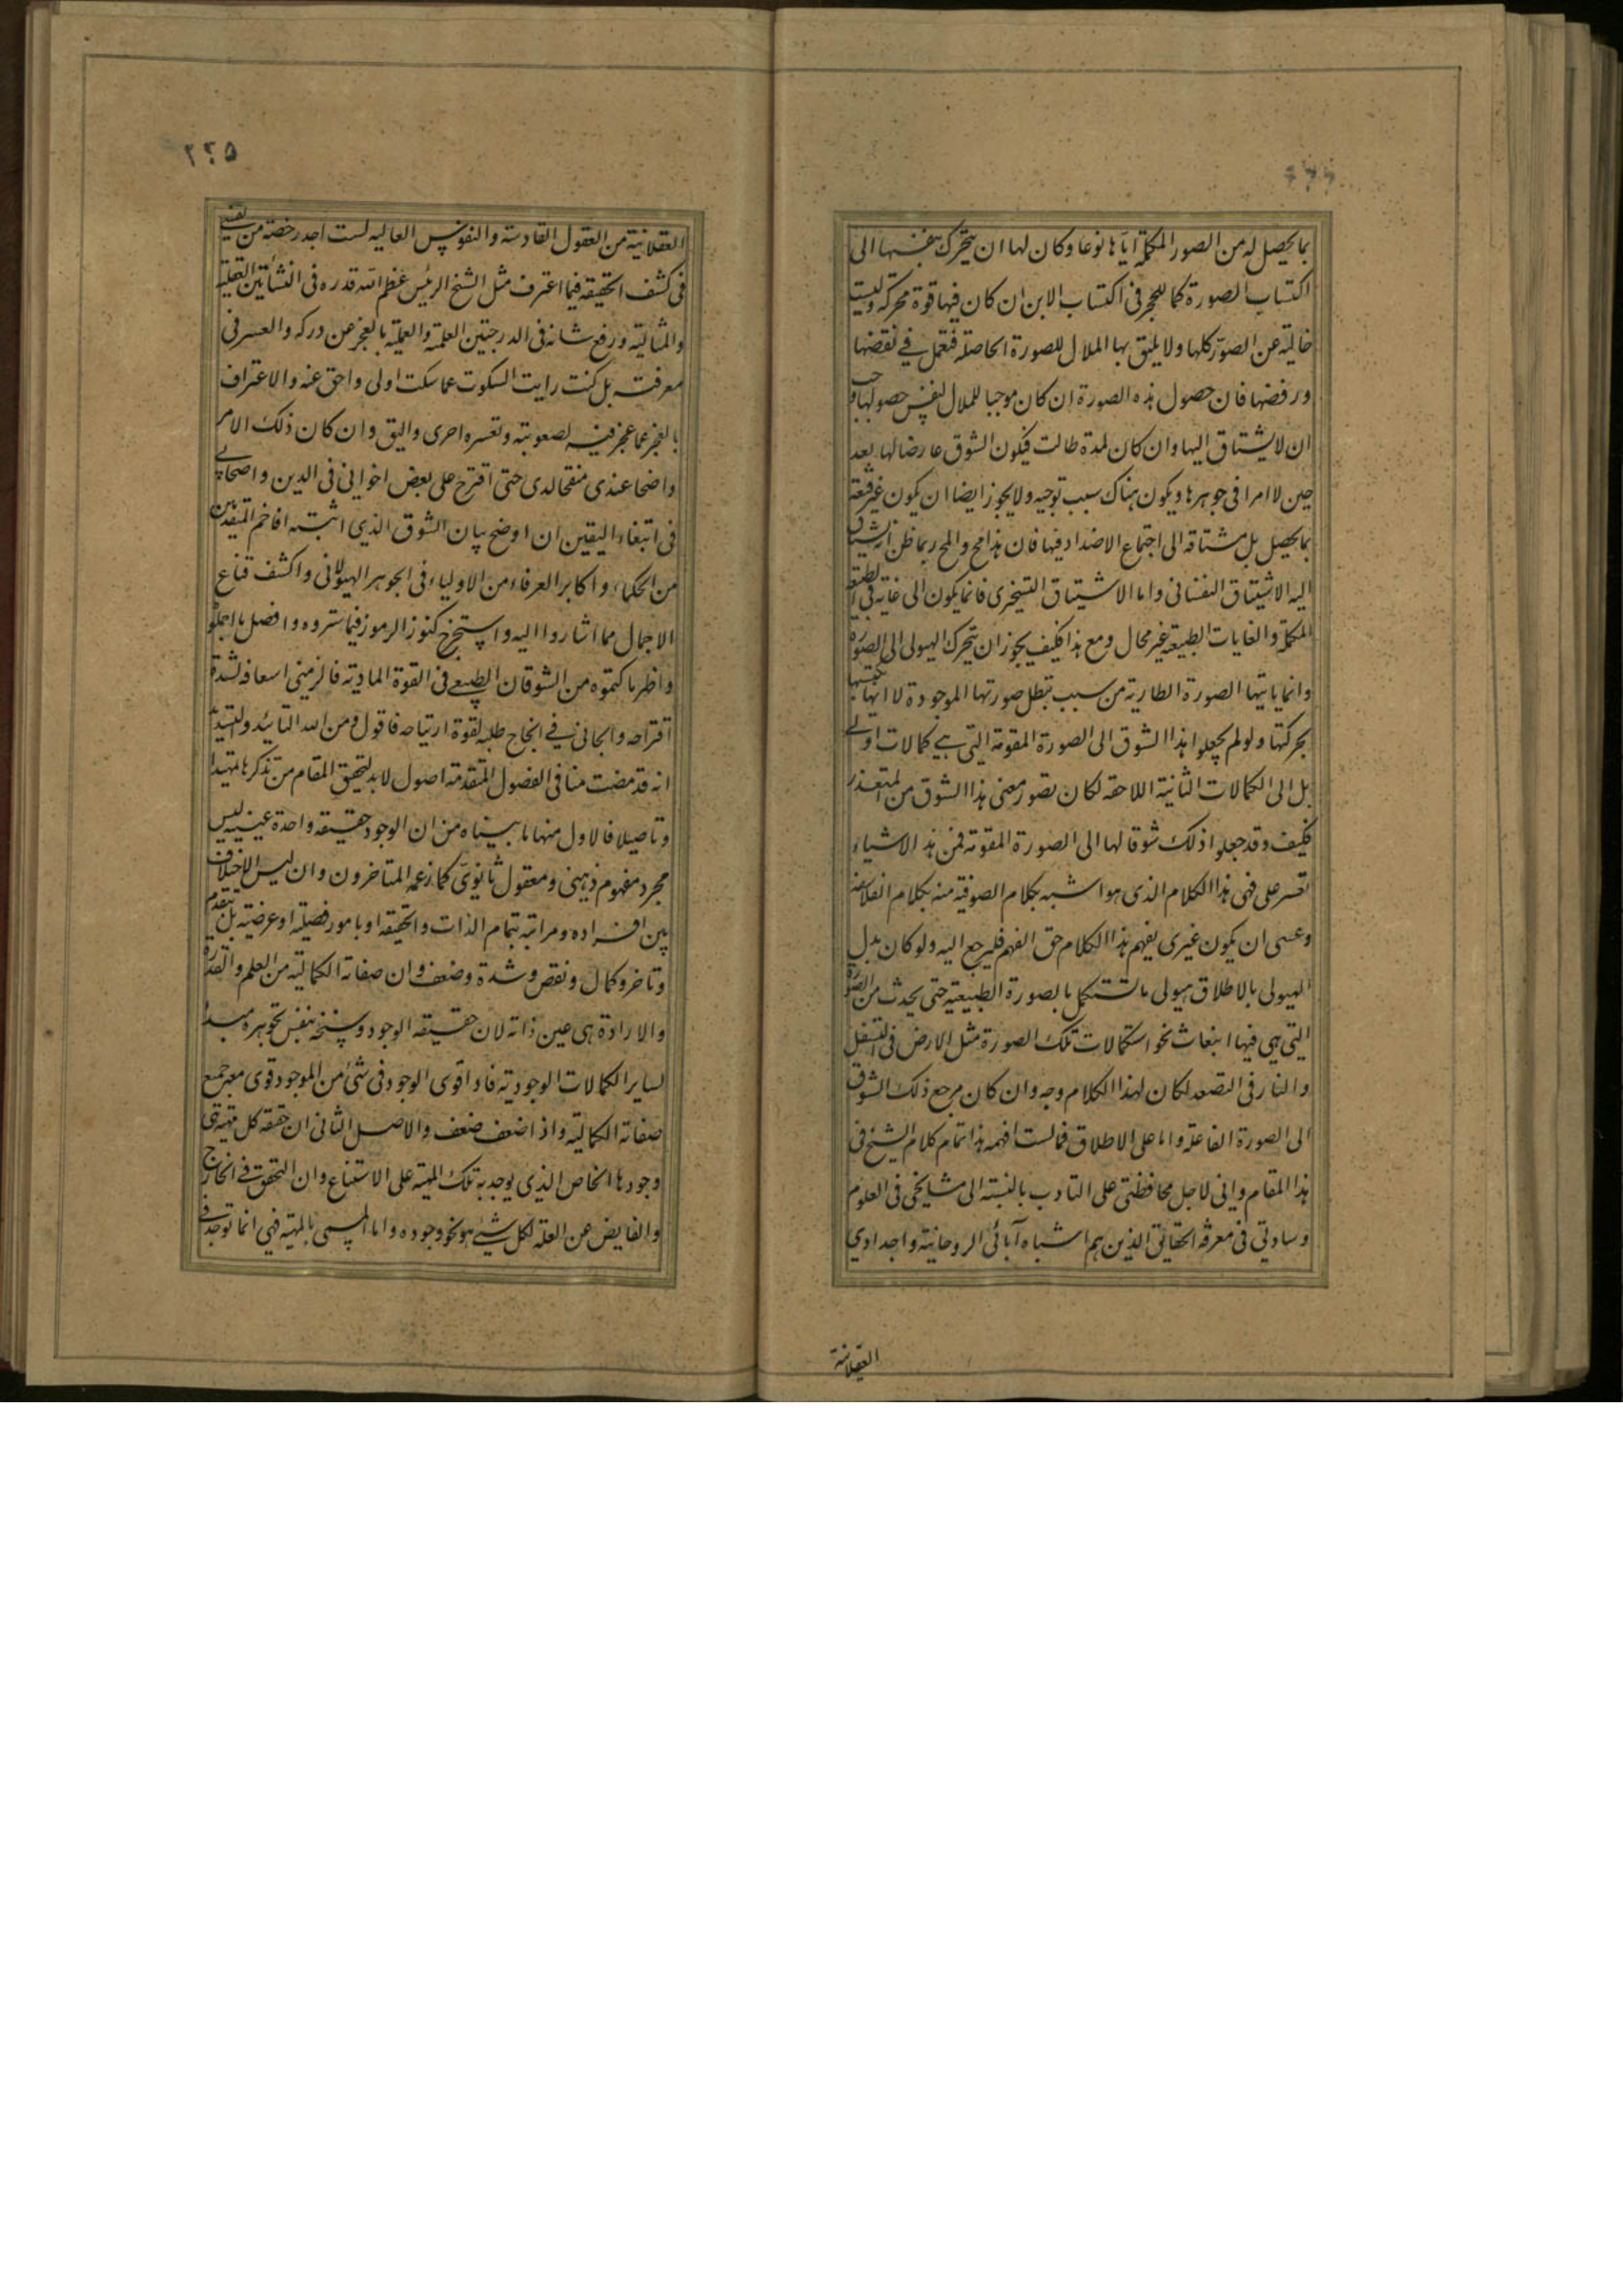 بما يحصل له من الصور المكملة اياها نوعا وكان لها ان يتحرك بنفسها الى
اكتساب الصورة كما للحجر فى اكتساب الاين ان كان فيها قوة محركه وليست
خالية عن الصور كلها ولا يليق بها الملال للصورة الحاصله فتعمل فى نقضها
ورفضها فان حصول هذه الصورة ان كان موجبا للملال لنفس حصولها وجب
ان لا يشتاق اليها وان كان لمدة طالت فيكون الشوق عارضا لها بعد
حين لا امرا فى جوهرها ويكون هناك سبب توجبه ولا يجوز ايضا ان يكون غير قنعة
بما يحصل بل مشتاقه الى اجتماع الاضداد فيها فان هذا مح والمح ربما ظن انه يشتاق
اليه الاشتياق النفسانى واما الاشتياق التسخيرى فانما يكون الى غاية فى الطبيعة
المكملة والغايات الطبيعية غير محال ومع هذا فكيف يجوز ان يتحرك الهيولى الى الصورة
وانما ياتيها الصورة الطارية من سبب تبطل صورتها الموجودة لا انها تكتسبها
بحركتها ولو لم يجعلوا هذا الشوق الى الصورة المقومة التى هى كمالات اولى
بل الى الكمالات الثانية اللاحقه لكان تصور معنى هذا الشوق من المتعذر
فكيف وقد جعلوا ذلك شوقا لها الى الصورة المقومة فمن هذه الاشياء
تعسر على فهى هذا الكلام الذى هو اشبه بكلام الصوفية منه بكلام الفلاسفة
وعسى ان يكون غيرى يفهم هذا الكلام حق الفهم فليرجع اليه ولو كان بدل
الهيولى بالاطلاق هيولى ما تستكمل بالصورة الطبيعية حتى يحدث من الصورة
التى هى فيها انبعاث نحو استكمالات تلك الصورة مثل الارض فى التسفل
والنار فى التصعد لكان لهذا الكلام وجه وان كان مرجع ذلك الشوق
الى الصورة الفاعلة واما على الاطلاق فما لست افهمه هذا تمام كلام الشيخ فى
هذا المقام وانى لاجل محافظتى على التادب بالنسبة الى مشايخى فى العلوم
وساداتى فى معرفة الحقايق الذين هم اشباه آبائى الروحانية واجدادى
العقلانية
٢٢٥
العقلانية من العقول القادسة والنفوس العاليه لست اجد رخصة من نفسى
فى كشف الحقيقه فيما اعترف مثل الشيخ الرئيس عظم الله قدره فى النشأتين العقلية
والمثالية ورفع شانه فى الدرجتين العلمية والعملية بالعجز عن دركه والعسر فى
معرفته بل كنت رايت السكوت عما سكت اولى واحق عنه والاعتراف
بالعجز عما عجز فيه لصعوبته وتعسره احرى واليق وان كان ذلك الامر
واضحا عندى منقحا لدى حتى اقترح على بعض اخوانى فى الدين واصحابى
فى ابتغاء اليقين ان اوضح بيان الشوق الذى اثبته افاخم المتقدمين
من الحكماء واكابر العرفاء من الاولياء فى الجوهر الهيولانى واكشف قناع
الاجمال مما اشاروا اليه واستخرج كنوز الرموز فيما ستروه وافصل ما اجملوا
واظهر ما كتموه من الشوقان الطبيعى فى القوة المادية فالزمنى اسعافه لشدة
اقتراحه والجانى فى انجاح طلبه لقوة ارتياحه فاقول ومن الله التائيد والتسديد
انه قد مضت منا فى الفصول المتقدمة اصول لابد لتحقيق المقام من تذكرها تمهيدا
وتاصيلا فالاول منها ما بيناه من ان الوجود حقيقه واحدة عينيه ليس
مجرد مفهوم ذهنى ومعقول ثانوى كما زعمه المتاخرون وان ليس الاختلاف
بين افراده ومراتبه بتمام الذات والحقيقه او بامور فصيلة او عرضية بل بتقدم
وتاخر وكمال ونقص وشدة وضعف وان صفاته الكمالية من العلم والقدرة
والارادة هى عين ذاته لان حقيقه الوجود وسنخه بنفس تجوهره مبدأ
لساير الكمالات الوجودية فاذا قوى الوجود فى شئ من الموجود قوى معه جميع
صفاته الكمالية واذا ضعف ضعف والاصل الثانى ان حقيقه كل مهية هى
وجودها الخاص الذى يوجد به تلك المهية على الاستتباع وان المتحقق فى الخارج
والفايض عن العلة لكل شئ هو نحو وجوده واما المسمى بالمهية فهى انما توجد فى